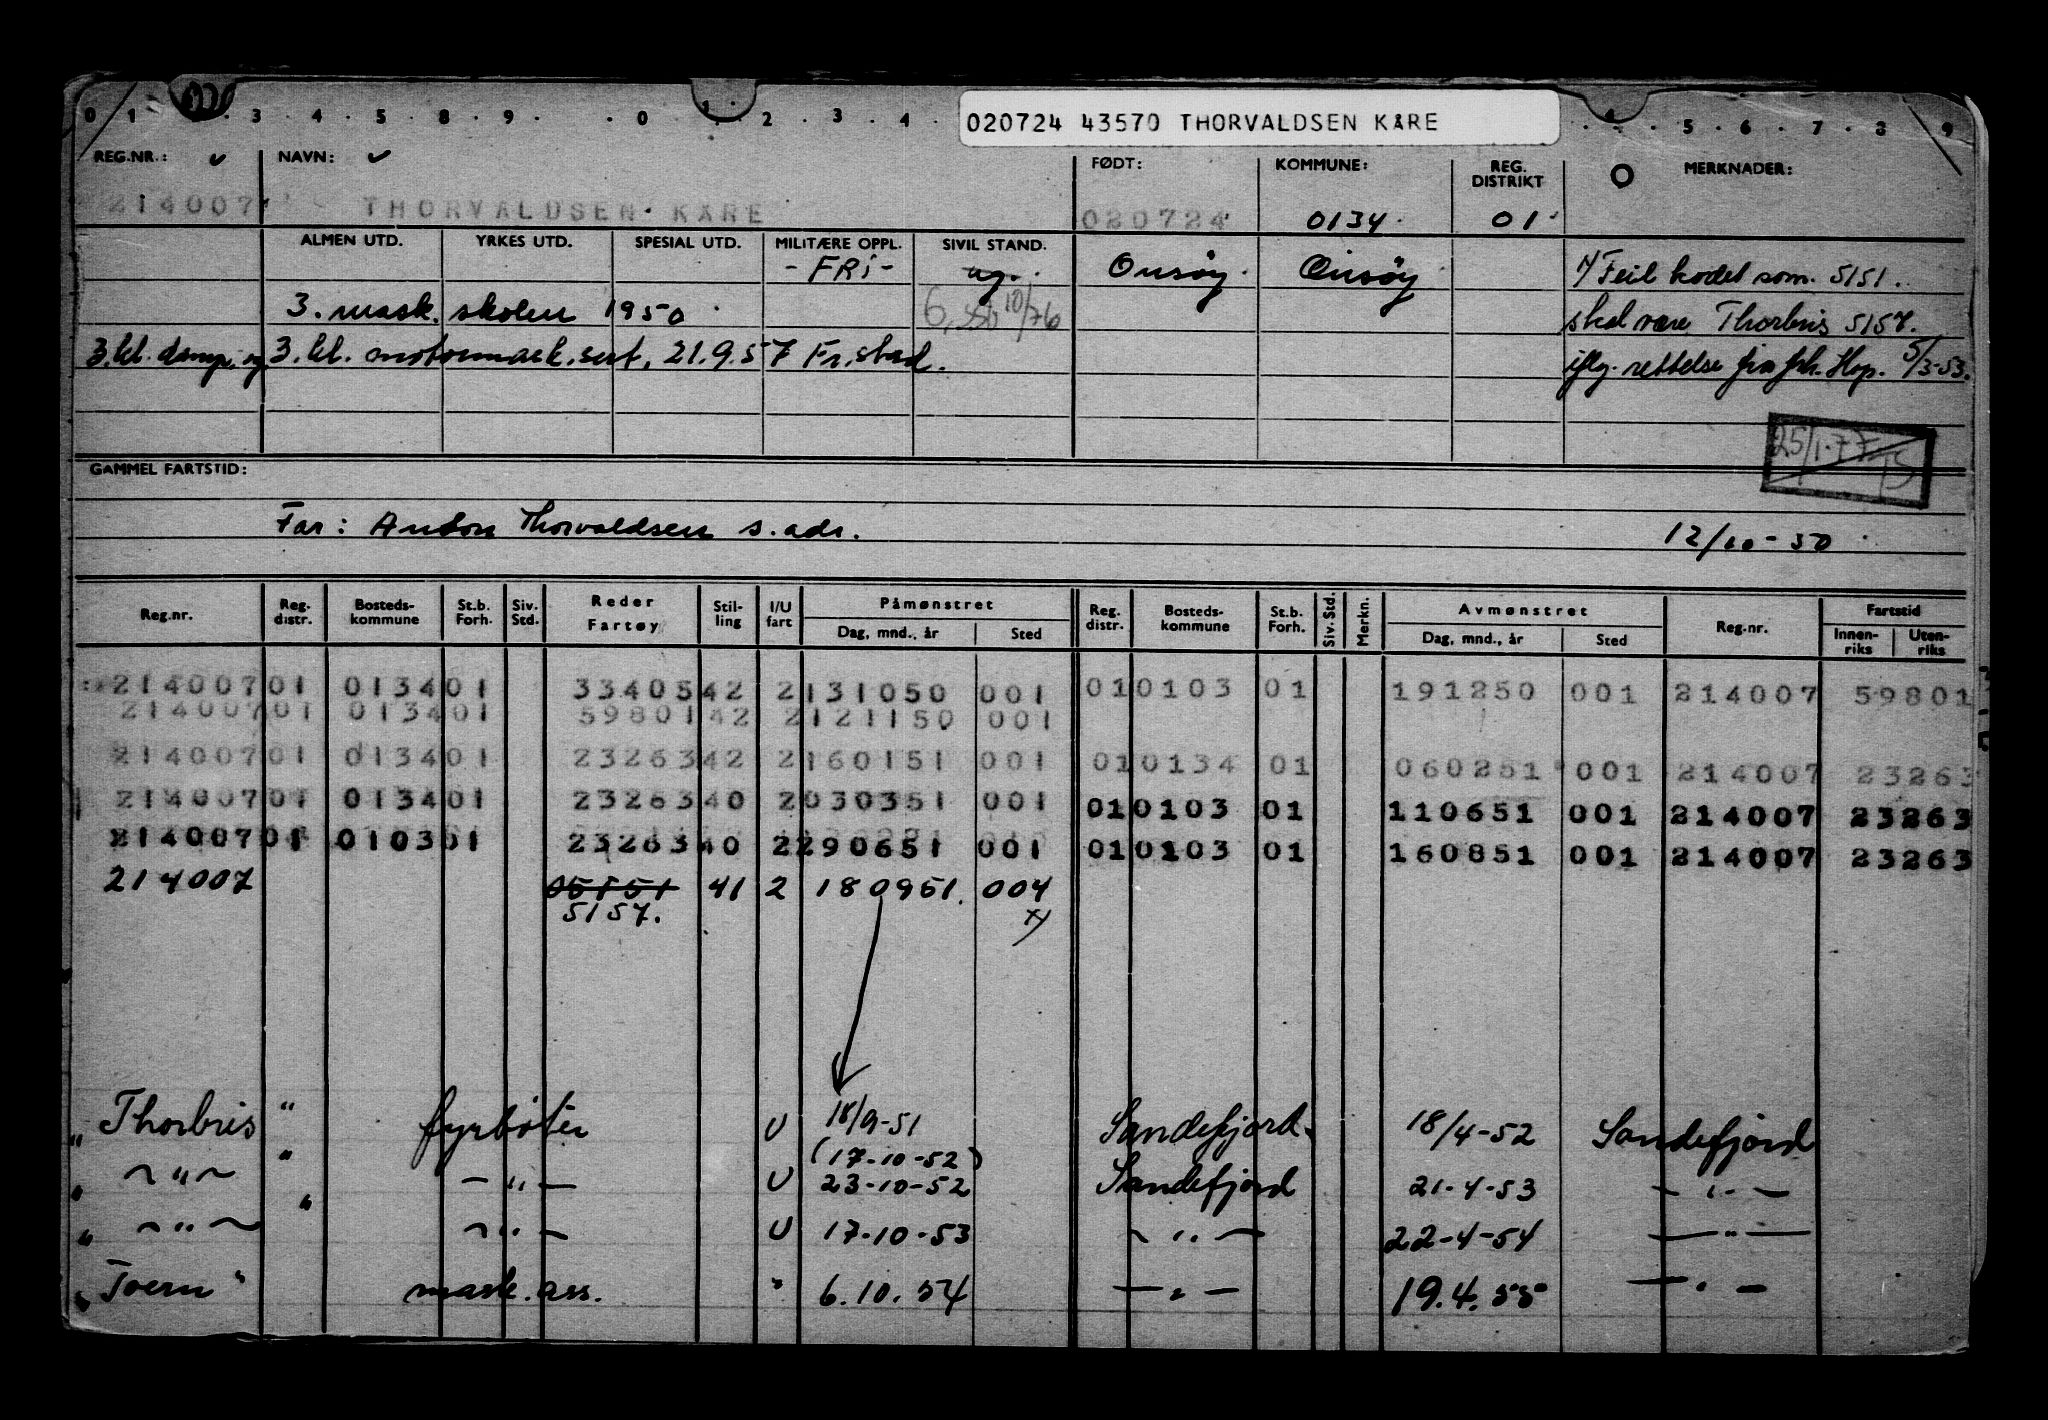 0 1 . 3 . 4 . 5 . 8 . 9 . . 0 . 1 . 2 . 3 . 4 . . 4 . 5 . 6 . 7 . 8 9
020724 43570 THORVALDSEN KÅRE
REG.NR.: NAVN: FØDT: KOMMUNE: REG. DISTRIKT O MERKNADER:
214007 THORVALDSEN KÅRE 020724 0134 01
ALMEN UTD. YRKES UTD. SPESIAL UTD. MILITÆRE OPPL. SIVIL STAND.
-FRi- ug. Onsøy Onsøy x/ Feil kodet som 5151.
3. mask. skolen 1950 10/76 skal være Thorbris 5157.
3. kl. damp. og 3. kl. motormask.sert. 21.9.57 Fr.stad. iflg. rettelse fra frk. Hop. 5/3-53.
25/1-77
GAMMEL FARTSTID:
Far: Anton Thorvaldsen s. adr. 12/10-50
Reg.nr. Reg. distr. Bosteds-kommune St.b. Forh. Siv. Std. Reder Fartøy Stil-ling I/U fart Påmønstret Reg. distr. Bosteds-kommune St.b. Forh. Siv. Std. Merkn. Avmønstret Reg.nr. Fartstid
Dag, mnd., år Sted Dag, mnd., år Sted Innen-riks Uten-riks
214007 01 0134 01 33405 42 2 131050 001 01 0103 01 191250 001 214007 59801
214007 01 0134 01 59801 42 2 121150 001
214007 01 0134 01 23263 42 2 160151 001 01 0134 01 060251 001 214007 23263
214007 01 0134 01 23263 40 2 030351 001 01 0103 01 110651 001 214007 23263
214007 01 0103 01 23263 40 2 290651 001 01 0103 01 160851 001 214007 23263
214007 05151 41 2 180951. 004
5157. x/
"Thorbris" fyrbøter U 18/9-51 Sandefjord. 18/4-52 Sandefjord
(17-10-52)
" ~ " ~ " - " - U 23-10-52 Sandefjord 21-4-53 - " -
" ~ " ~ " ~ " - U 17-10-53 ~ " - 22-4-54 - " -
"Toern" mask. ass. " 6.10.54 - " - 19.4.55 - " -